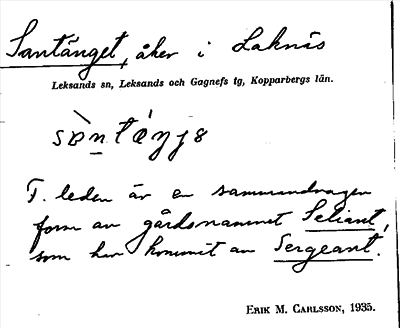 Santänget, åker i Laknäs
Leksands sn, Leksands och Gagnefs tg, Kopparbergs län.
F. leden är en sammandragen
form av gårdsnamnet Seliant,
som har kommit av Sergeant.
ERIK M. CARLSSON, 1935.